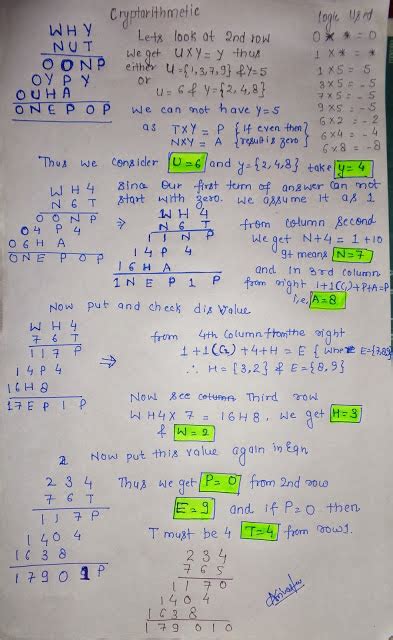 Cryptorithmetic
WHY
NUT
OONP
OYPY
OUHA
ONEPOP
Lets look at 2nd row
We get UXY = Y thus
either U={1,3,7,9} & Y=5
or
U = 6 & Y={2,4,8}
We can not have y=5
as TXY = P {if even then}
NXY = A {result is zero}
Logic Used
0 * * = 0
1 * * = *
1 X 5 = 5
3 X 5 = -5
7 X 5 = -5
9 X 5 = -5
6 X 2 = -2
6 X 4 = -4
6 X 8 = -8
Thus we consider U=6 and y={2,4,8} take y=4
Since our first term of answer can not
start with zero. we assume it as 1
WH4
N6T
OONP
O4P4
O6HA
ONEPOP
⇒
WH4
N6T
11NP
14P4
16HA
1NEP1P
from column second
We get N+4 = 1+10
It means N=7
and in 3rd column
from right 1+1(C1)+P+A=P
i.e, A=8
Now put and check dis value
WH4
76T
117P
14P4
16H8
17EP1P
⇒
from 4th column from the right
1+1(C2)+4+H = E { Where E={7,8,9}
∴ H = {3,2} & E={8,9}
Now see column Third row
WH4 X 7 = 16H8. We get H=3
& W=2
2
Now put this value again in Eqn
234
76T
117P
1404
1638
17901P
Thus we get P=0 from 2nd row
E=9 and if P=0 then
T must be 4 T=4 from row1.
234
765
1170
1404
1638
179010